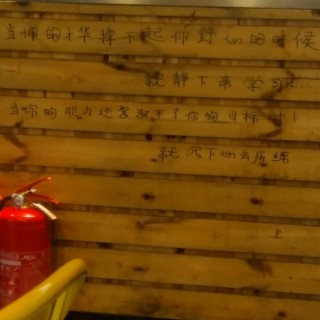 当你的才华撑不起你野心的时候
就静下来学习....
当你的能力还驾驭不了你的目标时!
就沉下心去历练